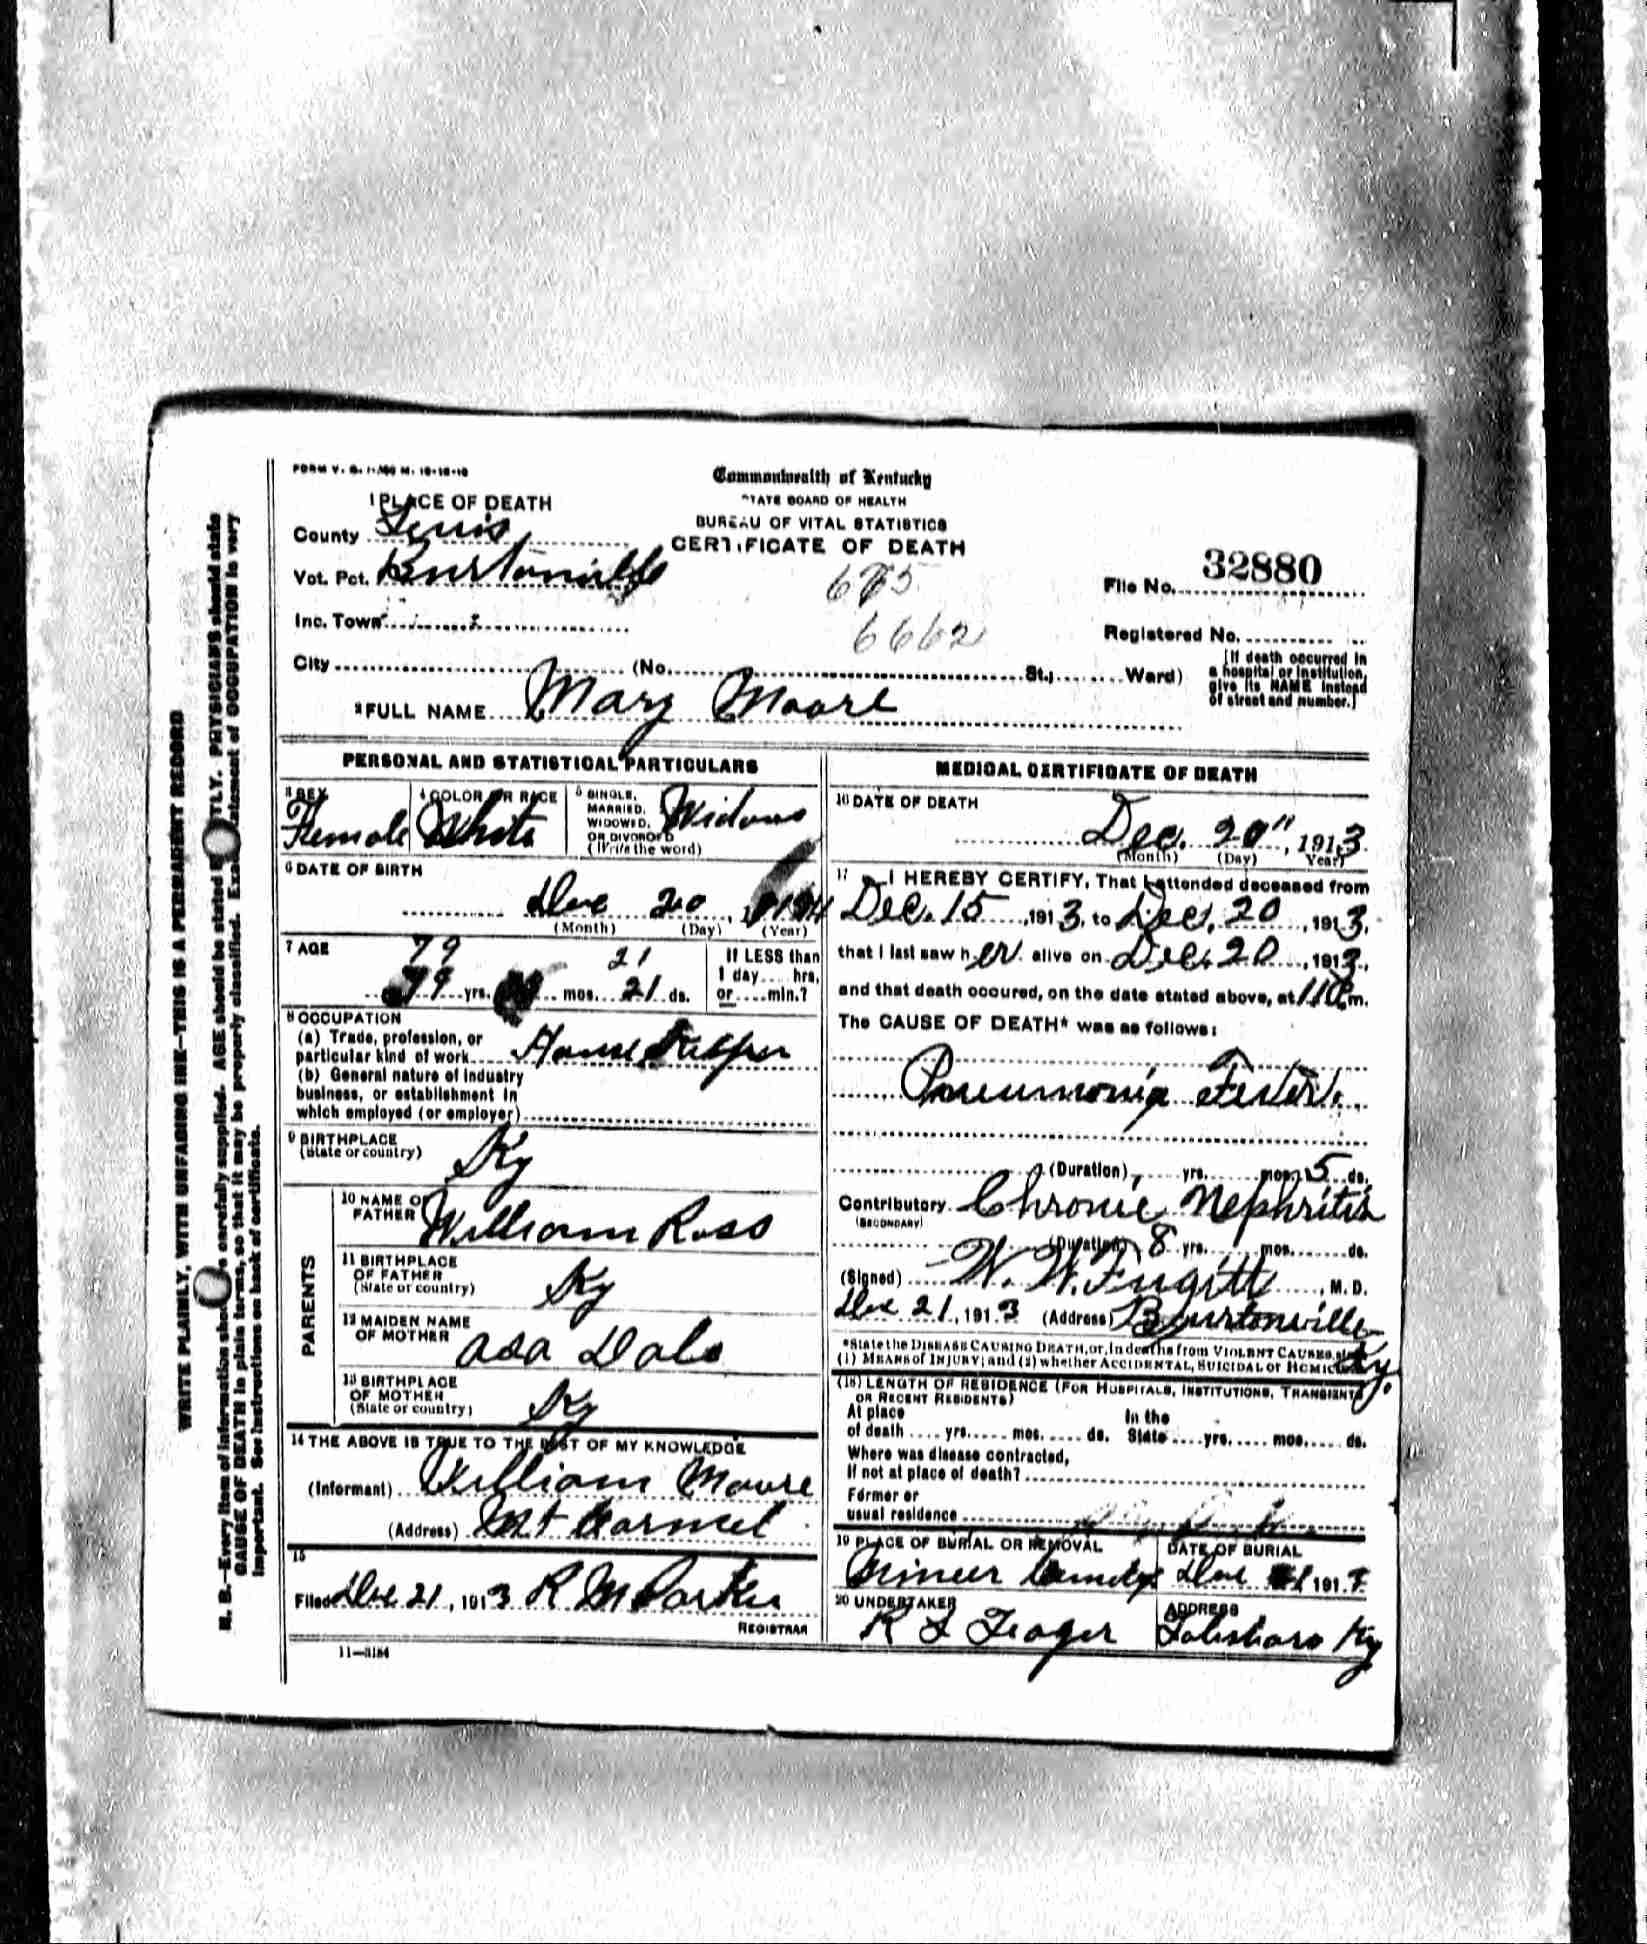 WRITE PLAINLY, WITH UNFADING INK—THIS IS A PERMANENT RECORD
N. B.—Every item of information should be carefully supplied. AGE should be stated EXACTLY. PHYSICIANS should state
CAUSE OF DEATH in plain terms, so that it may be properly classified. Exact statement of OCCUPATION is very
important. See instructions on back of certificate.
Commonwealth of Kentucky
STATE BOARD OF HEALTH
BUREAU OF VITAL STATISTICS
CERTIFICATE OF DEATH
1 PLACE OF DEATH
County Lewis
Vot. Pct. Burtonville
Inc. Town
675
6662
File No. 32880
Registered No.
City (No. St., Ward)
[If death occurred in
a hospital or institution,
give its NAME instead
of street and number.]
2 FULL NAME Mary Moore
PERSONAL AND STATISTICAL PARTICULARS
3 SEX
Female
4 COLOR OR RACE
White
5 SINGLE,
MARRIED,
WIDOWED,
OR DIVORCED
(Write the word)
Widow
6 DATE OF BIRTH
Dec 20
(Month) (Day) (Year)
7 AGE
79 21
79 yrs. mos. 21 ds.
If LESS than
1 day.... hrs,
or .... min.?
8 OCCUPATION
(a) Trade, profession, or
particular kind of work House Keeper
(b) General nature of industry
business, or establishment in
which employed (or employer)
9 BIRTHPLACE
(State or country)
Ky
PARENTS
10 NAME OF
FATHER
William Ross
11 BIRTHPLACE
OF FATHER
(State or country)
Ky
12 MAIDEN NAME
OF MOTHER
asa Dale
13 BIRTHPLACE
OF MOTHER
(State or country)
Ky
14 THE ABOVE IS TRUE TO THE BEST OF MY KNOWLEDGE
(Informant) William Moore
(Address) Mt Carmel
15
Filed Dec 21, 1913 R M Parker
REGISTRAR
11—3184
MEDICAL CERTIFICATE OF DEATH
16 DATE OF DEATH
Dec. 20", 1913
(Month) (Day) Year)
17 I HEREBY CERTIFY, That I attended deceased from
Dec. 15, 1913, to Dec. 20, 1913,
that I last saw her alive on Dec. 20, 1913,
and that death occured, on the date stated above, at m.
The CAUSE OF DEATH* was as follows:
Pneumonia Fever.
(Duration) yrs. mos. 5 ds.
Contributory Chronic Nephritis
(SECONDARY)
(Duration) 8 yrs. mos. ds.
(Signed) W. W. Fugitt, M. D.
Dec 21, 1913 (Address) Burtonville
Ky.
*State the DISEASE CAUSING DEATH, or, in deaths from VIOLENT CAUSES, state
(1) MEANS of INJURY; and (2) whether ACCIDENTAL, SUICIDAL or HOMICIDAL
(18) LENGTH OF RESIDENCE (FOR HOSPITALS, INSTITUTIONS, TRANSIENTS
OR RECENT RESIDENTS)
At place In the
of death .... yrs..... mos..... ds. State .... yrs..... mos..... ds.
Where was disease contracted,
If not at place of death?
Former or
usual residence
19 PLACE OF BURIAL OR REMOVAL
DATE OF BURIAL
Dec 191
20 UNDERTAKER
R L Teager
ADDRESS
Tolesboro Ky